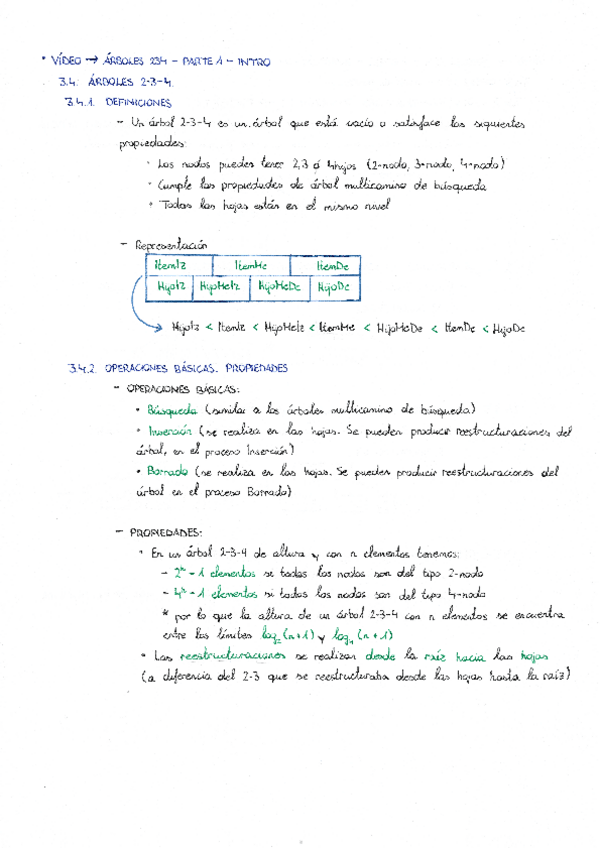 * VÍDEO → ÁRBOLES 234 - PARTE 1 - INTRO
3.4. ÁRBOLES 2-3-4.
3.4.1. DEFINICIONES
- Un árbol 2-3-4 es un árbol que está vacío o satisface las siguientes
propiedades:
· Los nodos pueden tener 2,3 ó 4 hijos (2-nodo, 3-nodo, 4-nodo)
· Cumple las propiedades de árbol multicamino de búsqueda
· Todas las hojas están en el mismo nivel
- Representación
ItemIz ItemMe ItemDe
HijoIz HijoMeIz HijoMeDe HijoDe
HijoIz < ItemIz < HijoMeIz < ItemMe < HijoMeDe < ItemDe < HijoDe
3.4.2. OPERACIONES BÁSICAS. PROPIEDADES
- OPERACIONES BÁSICAS:
• Búsqueda (similar a los árboles multicamino de búsqueda)
• Inserción (se realiza en las hojas. Se pueden producir reestructuraciones del
árbol, en el proceso Inserción)
• Borrado (se realiza en las hojas. Se pueden producir reestructuraciones del
árbol en el proceso Borrado)
- PROPIEDADES:
• En un árbol 2-3-4 de altura y con n elementos tenemos:
- 2ʰ - 1 elementos si todos los nodos son del tipo 2-nodo
- 4ʰ - 1 elementos si todos los nodos son del tipo 4-nodo
* por lo que la altura de un árbol 2-3-4 con n elementos se encuentra
entre los límites log₂(n+1) y log₄(n+1)
• Las reestructuraciones se realizan desde la raíz hacia las hojas
(a diferencia del 2-3 que se reestructuraba desde las hojas hasta la raíz)